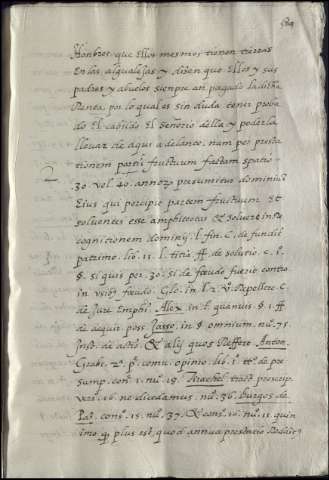 589
Hombres que Ellos mesmos tienen tierras
En las alqualejas y dizen que Ellos y sus
padres y abuelos siempre an pagado la dicha
Renta por lo qual es sin duda tener proba
do El cabildo El señorio della y poderla
llevar de aqui adelante. nam per presta
tionem partis fructuum factam spatio
2
30 vel 40. annorum presumitur dominium
Eius qui percipit partem fructuum &
soluentes esse amphiteotas & soluere in re
cognitionem dominij. l. fin. C. de fundis
patrimo. lib. 11. l. litis ff de solutio. c. 1.
§. si quis per. 30. si de fœudo fuerit contro
in vsibus fœudo. Glo. in l. 2. Repellere C.
de Jure Emphit. Alex. in l. quamuis §. 1. ff
de acquir. poss. Jasso. in § omnium. nu. 75.
Inst. de actio. & alij quos Reffert Anton.
Gabr. comu. opinio. lib. 1. tit. de pre
sump. con. 1. nu. 18. tract. prescrip.
ne dicedamus. nu. 36. burgos de
Paz. cons. 15. nu. 37. & cons. 10. nu. 11. quin
imo plus est, quod annua prestatio